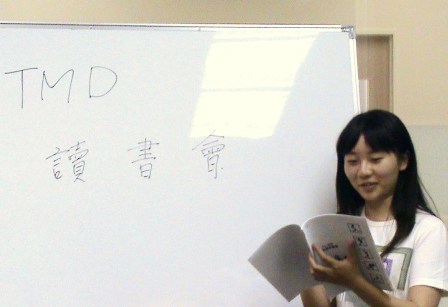 TMD
讀書會